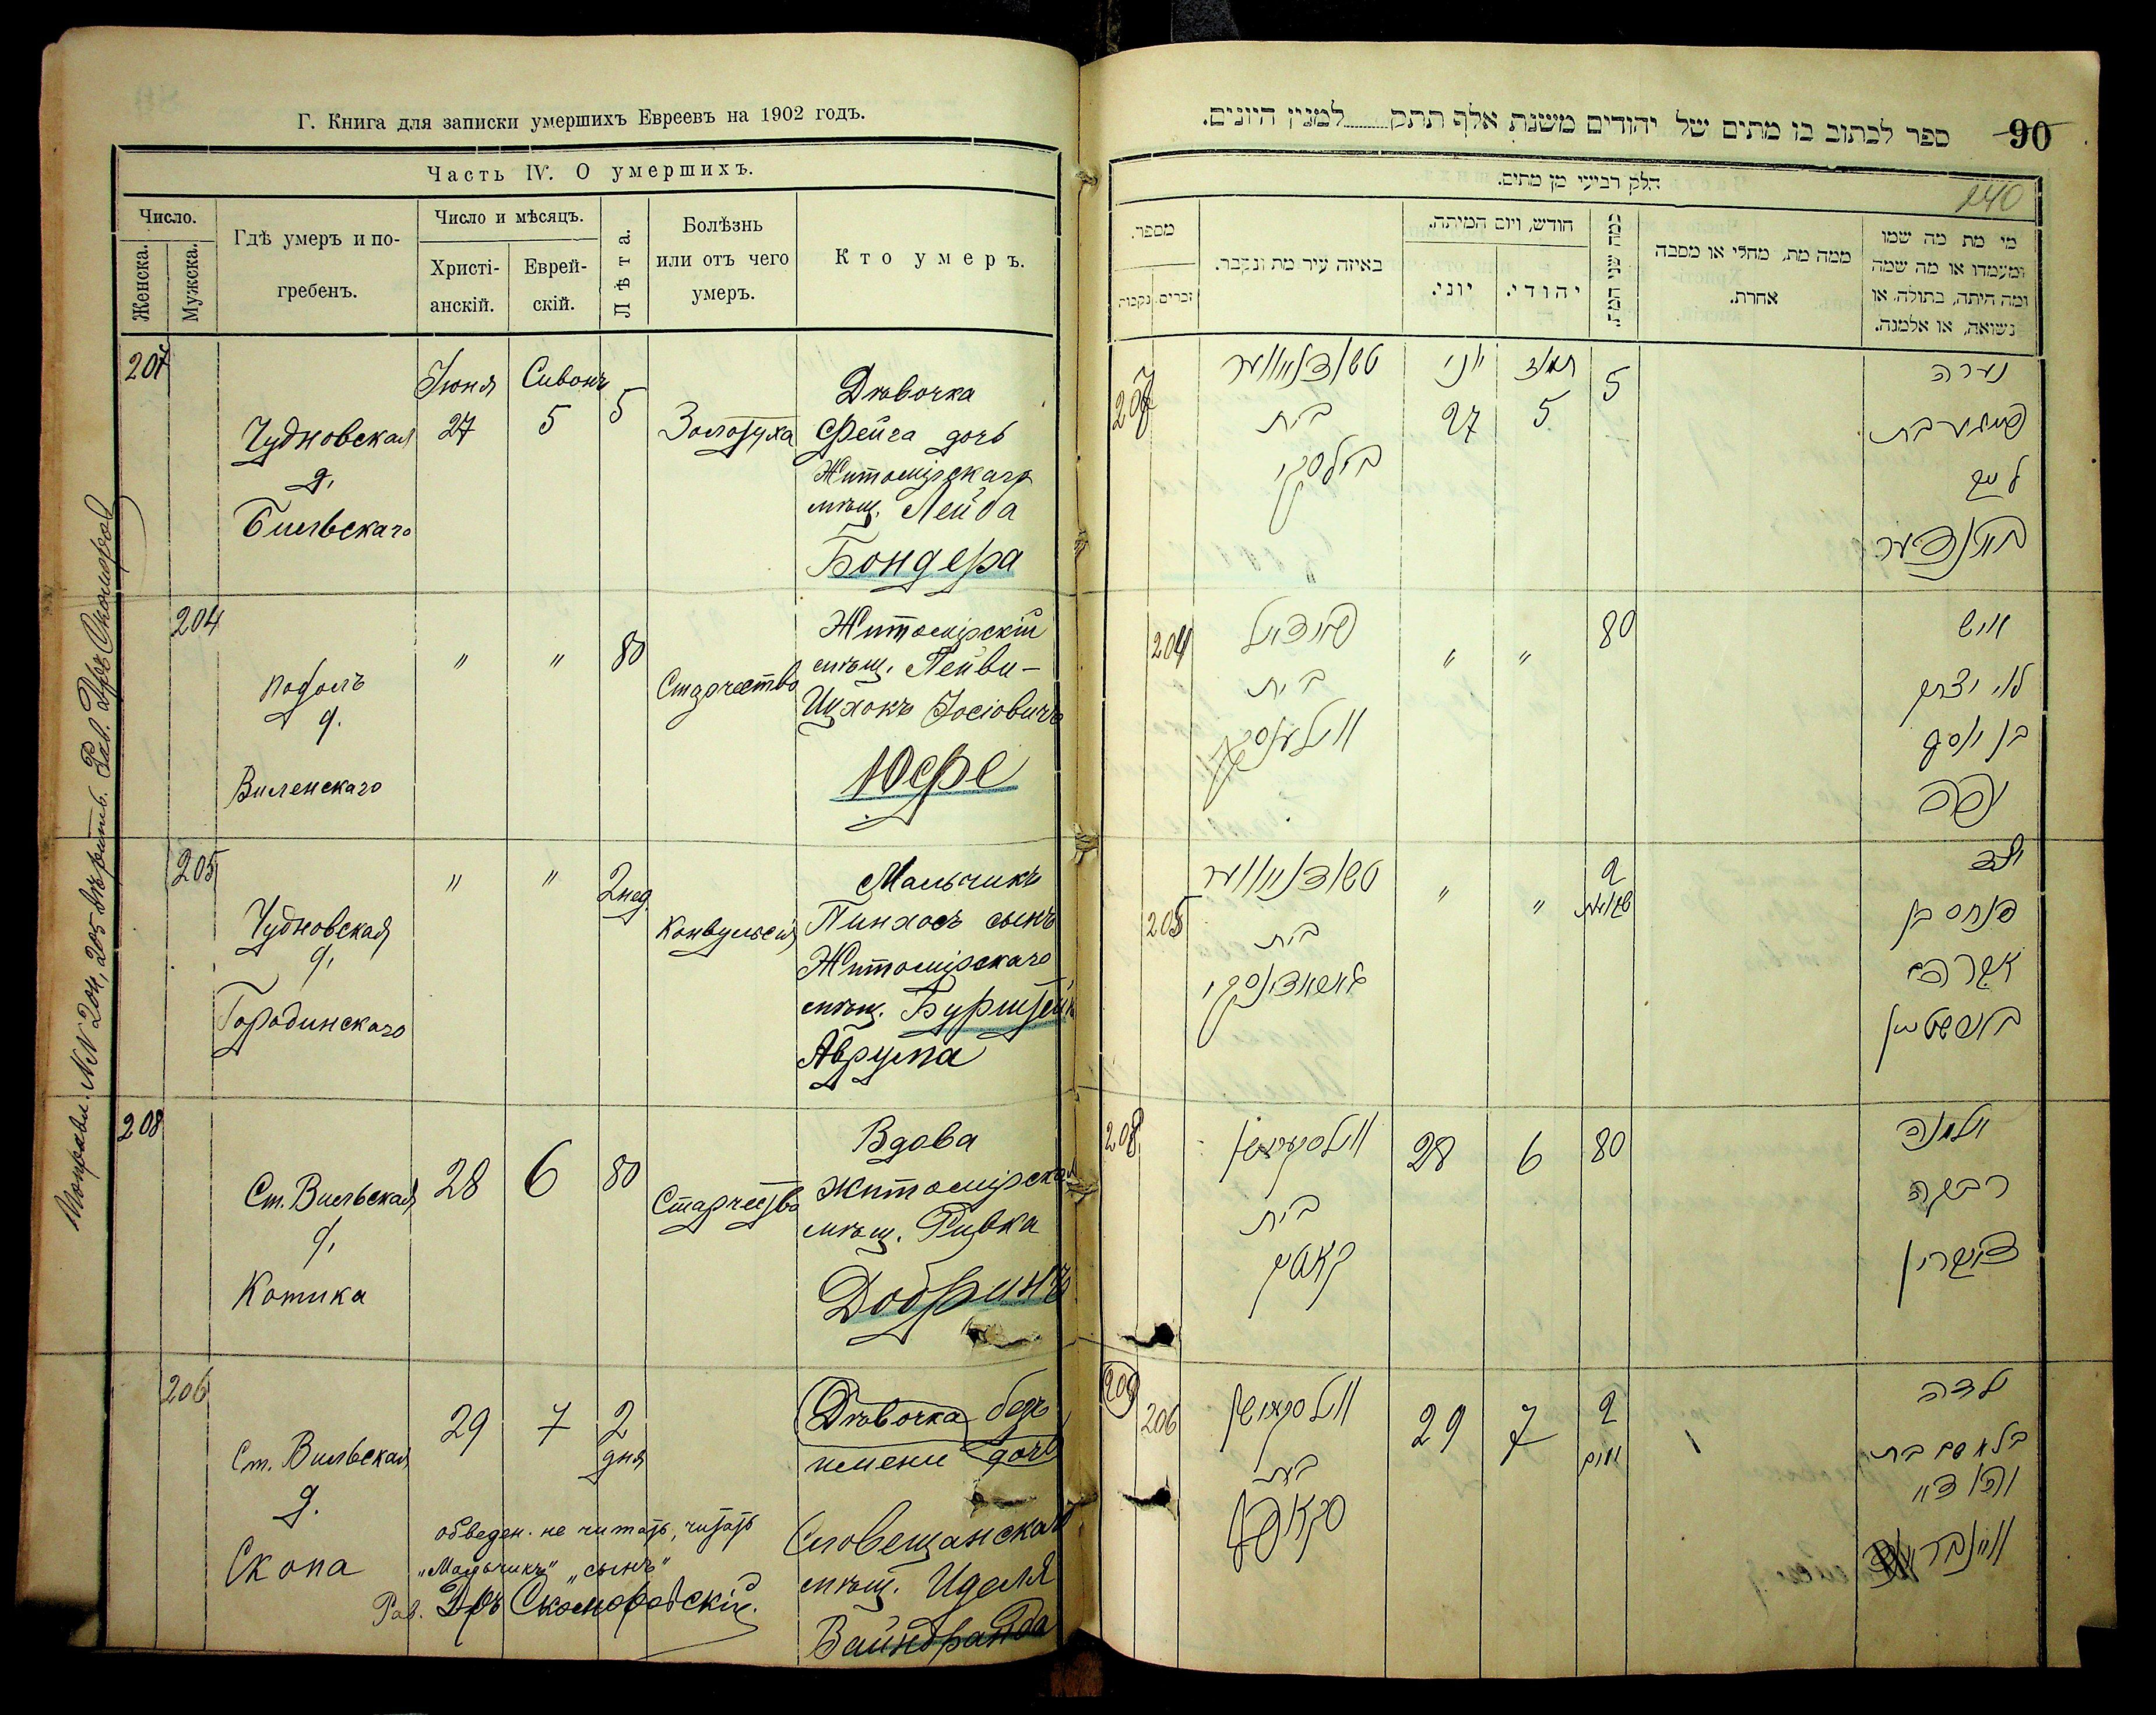 Г. Книга для записки умершихъ Евреевъ на 1902 годъ.
Часть IV. О умершихъ.
Число.
Женска.
Мужска.
Гдѣ умеръ и по-
гребенъ.
Число и мѣсяцъ.
Христі-
анскій.
Еврей-
скій.
Лѣта.
Болѣзнь
или отъ чего
умеръ.
Кто умеръ.
207
Чудновская
д.
Бильскаго
Іюня
27
Сивонъ
5
5
Золотуха
Дѣвочка
Фейга дочь
Житомірскаго
мѣщ. Лейба
Бондера
204
Подолъ
д.
Виленскаго
"
"
80
Старчество
Житомірскій
мѣщ. Лейви-
Ицхокъ Іосіовичъ
Юфе
205
Чудновская
д.
Городинскаго
"
"
2 нед.
Конвульсія
Мальчикъ
Пинхосъ сынъ
Житомірскаго
мѣщ. Бурштейн
Аврума
208
Ст. Вильская
д.
Котика
28
6
80
Старчество
Вдова
Житомірская
мѣщ. Ривка
Добринъ
206
Ст. Вильская
д.
Скопа
29
7
2
дня
Дѣвочка безъ
имени дочь
Словещанскаго
мѣщ. Иделя
Вайнбранда
обведен. не читать, читать
„Мальчикъ" „сынъ"
Рав. Д-ръ Скомаровскій.
№№ 204, 205 вѣрить. Рав. Д-ръ Скомаровс
90
ספר לכתוב בו מתים של יהודים משנת אלף תתק למנין היונים.
140
חלק רביעי מן מתים.
מספר.
נקבות
זכרים.
באיזה עיר מת ונקבר.
חודש, ויום המיתה.
יוני.
יהודי.
כמה שני המת
ממה מת, מחלי או מסבה
אחרת.
מי מת מה שמו
ומעמדו או מה שמה
ומה היתה, בתולה, או
נשואה, או אלמנה.
207
טשודנאווער
בית
בילסקי
יוני
27
תמוז
5
5
נערה
פייגא בת
ליב
באנדער
204
פאדאל
בית
ווילענסקי
"
"
80
איש
לוי יצחק
בן יוסף
יפה
205
טשודנאווער
בית
"
"
2
שבועות
ילד
פנחס בן
אברהם
בורשטיין
208
בית
קאטיק
28
6
80
אלמנה
רבקה
דאברין
209
206
בית
סקאפ
29
7
2
יום
ילדה
בלא שם בת